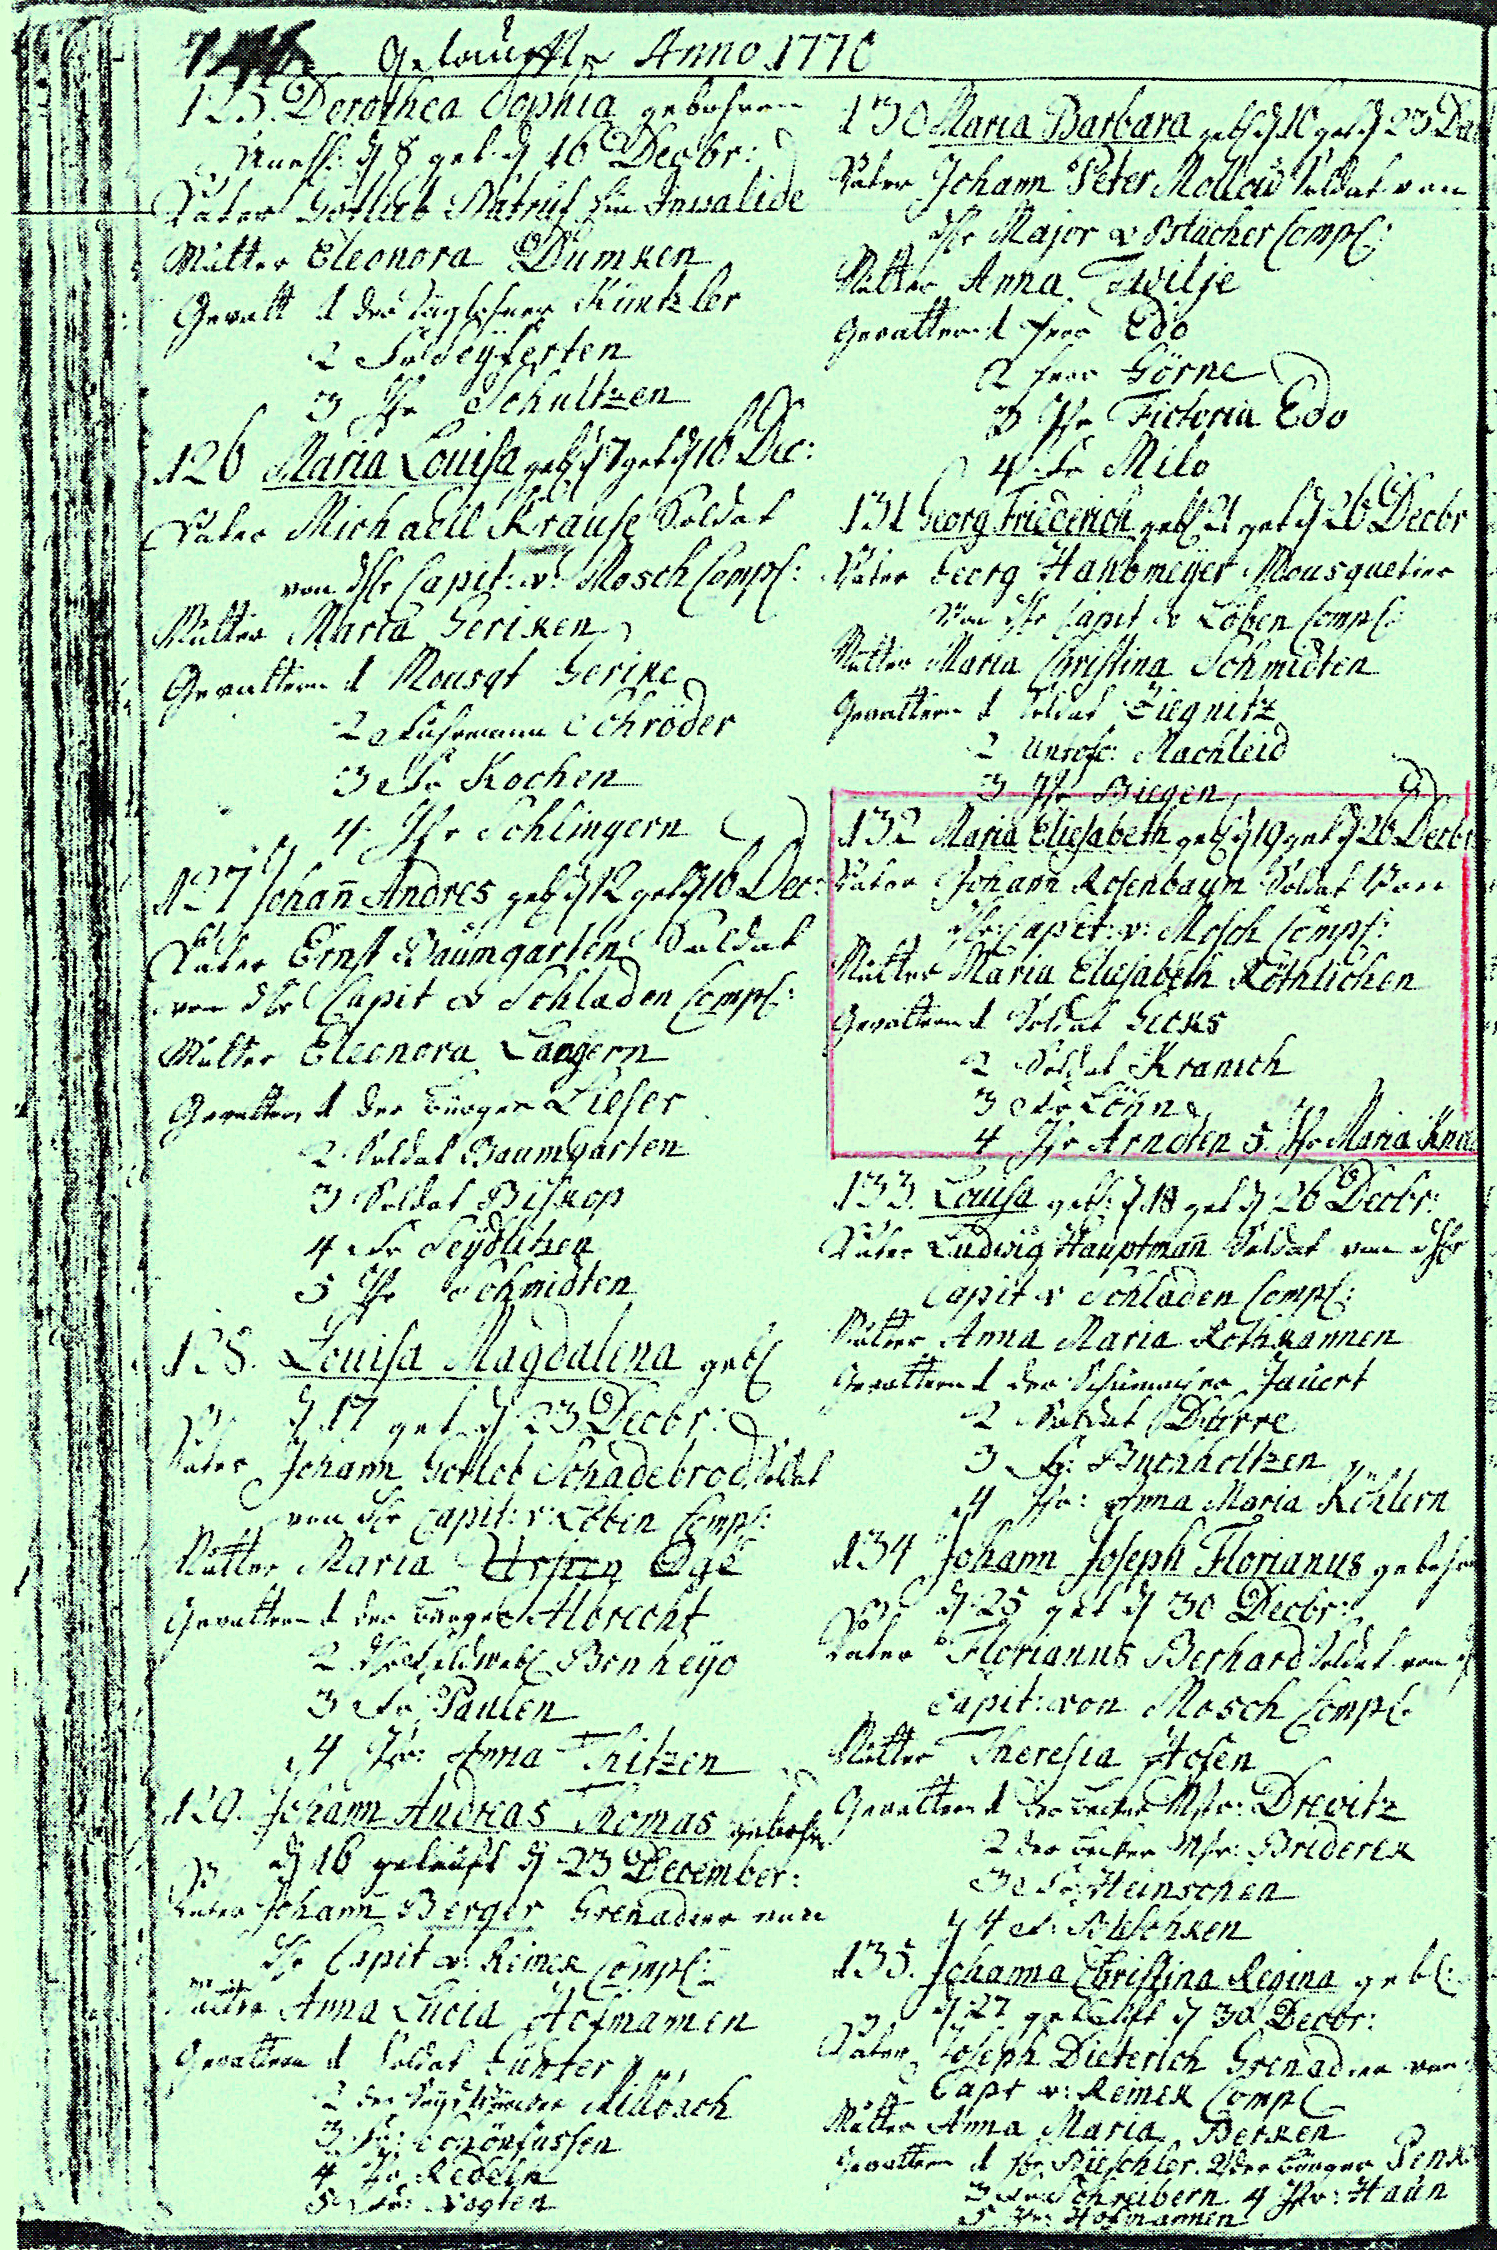 146 Getauffte Anno 1770
125. Dorothea Sophia gebohren
d 8 get. d 16 Decbr:
Vater Gotlieb ein Invalide
Mutter Eleonora Dumken
Gevatt 1 der Taglohner Küntzler
2 Fr Seyferten
3 Jfr Schultzen
126 Maria Louisa geb d 7 get d 16 Dec:
Vater Michaell Krause Soldat
von H Capit: v: Mosch Comp:
Mutter Maria Geriken
Gevattern 1 Mousqt Gerike
2 Fuhrmann Schröder
3 Fr Kochen
4. Jfr Schlingern
127 Johan̄ Andres geb d 12 get d 16 Dec:
Vater Ernst Baumgarten Soldat
von H Capit v Schladen Comp:
Mutter Eleonora Langern
Gevattern 1 der Burger Lieser
2 Soldat Baumgarten
3 Soldat Biskop
4 Fr Seydlitzen
5 Jfr Schmidten
128. Louisa Magdalena geb
d 17 get d 23 Decbr:
Vater Johann Gotlob Schadebrod Soldat
von H Capit: v: Löben Comp:
Mutter Maria
Gevattern 1 der Burger Albrecht
2 H Feldweb Benheyo
3 Fr Paulen
4 Jfr: Anna Thitzen
129. Johann Andreas Thomas gebohr
d 16 getauft d 23 December:
Vater Johan̄ Berger Grenadier von
H Capit v: Reinek Comp:
Mutter Anna Lucia Hofmannen
Gevattern 1 Soldat Günter
2 der
3 Fr: Schönfussen
4 Jfr Redeln
5 Fr: Vogten
130 Maria Barbara geb d 16 get d 23 De
Vater Johann Peter Mollow Soldat von
H Major v Comp:
Mutter Anna Twilje
Gevattern 1 Herr Edo
2 Herr Görne
3 Jfr Fictoria Edo
4 Fr Milo
131 Georg Friederich geb 21 get d 26 Decbr
Vater Georg Hanbmeyer Mousquetier
von H Capit v Löben Comp:
Mutter Maria Christina Schmidten
Gevattern 1 Soldat Liegnitz
2 Unt ofc: Machleid
3 Jfr Biegen
132 Maria Eliesabeth geb d 19 get d 26 Decbr
Vater Johan̄ Rosenbaum Soldat von
H: Capit: v: Mosch Comp:
Mutter Maria Eliesabeth Röthlichen
Gevattern 1 Soldat Gicks
2 Soldat Kranich
3 Fr Löhn
4 Jfr Arndten 5. Jfr Maria Knu
133. Louisa geb: d 18 get d 26 Decbr:
Vater Ludwig Hauptman̄ Soldat von H
Capit v Schladen Comp:
Mutter Anna Maria Rothkannen
Gevattern 1 der Schumacher Jauert
2 Soldat Dürre
3 Fr: Buchholtzen
4 Jfr: Anna Maria Köhlern
134 Johann Joseph Florianus gebohr
d 25 get d 30 Decbr:
Vater Florianus Berhard Soldat von
Capit: von Mosch Comp:
Mutter Theresia Hosen
Gevattern 1 der Becker Mstr: Drewitz
2 der Becker Mstr: Briderek
3 Fr: Heinschen
4 Fr:
135. Johanna Christina Regina geb:
d 27 getauft d 30 Decbr:
Vater Joseph Dieterich Grenadier von
Capt v: Reinek Comp
Mutter Anna Maria Berken
Gevattern 1 Hr Büschler. 2 der Burger Penk
3 Fr Schreibern 4 Jfr: Haun
5 Hofmannen